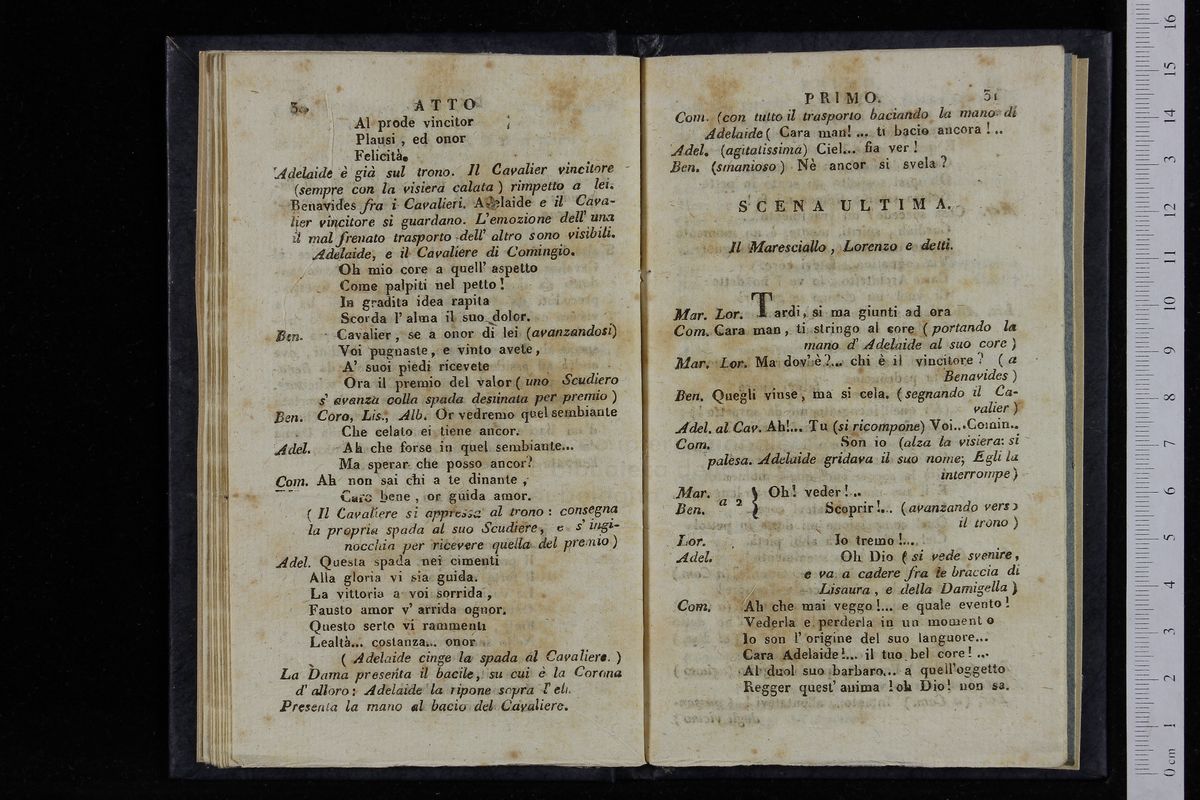 30 ATTO
Al prode vincitor ;
Plausi , ed onor
Felicità.
Adelaide è già sul trono. Il Cavalier vincitore
(sempre con la visiera calata ) rimpetto a lei.
Benavides fra i Cavalieri. Adelaide e il Cava-
lier vincitore si guardano. L'emozione dell' una
il mal frenato trasporto dell' altro sono visibili.
Adelaide, e il Cavaliere di Comingio.
Oh mio core a quell' aspetto
Come palpiti nel petto !
In gradita idea rapita
Scorda l' alma il suo dolor.
Ben. Cavalier , se a onor di lei (avanzandosi)
Voi pugnaste, e vinto avete,
A' suoi piedi ricevete
Ora il premio del valor ( uno Scudiero
s' avanza colla spada destinata per premio )
Ben. Coro, Lis., Alb. Or vedremo quel sembiante
Che celato ei tiene ancor.
Adel. Ah che forse in quel sembiante...
Ma sperar che posso ancor?
Com. Ah non sai chi a te dinante ,
Caro bene , or guida amor.
( Il Cavaliere si appressa al trono : consegna
la propria spada al suo Scudiere, e s' ingi-
nocchia per ricevere quella del premio )
Adel. Questa spada nei cimenti
Alla gloria vi sia guida.
La vittoria a voi sorrida ,
Fausto amor v' arrida ognor.
Questo serto vi rammenti
Lealtà... costanza... onor
( Adelaide cinge la spada al Cavaliere. )
La Dama presenta il bacile, su cui è la Corona
d' alloro : Adelaide la ripone sopra l' el.
Presenta la mano al bacio del Cavaliere.
PRIMO. 31
Com. (con tutto il trasporto baciando la mano di
Adelaide ( Cara man! ... ti bacio ancora ! ..
Adel. (agitatissima) Ciel... fia ver !
Ben. (smanioso ) Nè ancor si svela ?
SCENA ULTIMA.
Il Maresciallo , Lorenzo e detti.
Mar. Lor. Tardi, si ma giunti ad ora
Com. Cara man , ti stringo al core ( portando la
mano d' Adelaide al suo core )
Mar. Lor. Ma dov' è ?... chi è il vincitore ? ( a
Benavides )
Ben. Quegli vinse, ma si cela. ( segnando il Ca-
valier )
Adel. al Cav. Ah!... Tu (si ricompone) Voi...Comin..
Com. Son io (alza la visiera: si
palesa. Adelaide gridava il suo nome; Egli la
interrompe )
Mar. } Oh! veder !...
Ben. a 2 } Scoprir !... ( avanzando verso
il trono )
Lor. Io tremo !...
Adel. Oh Dio ( si vede svenire,
e va a cadere fra le braccia di
Lisaura , e della Damigella )
Com. Ah che mai veggo !... e quale evento !
Vederla e perderla in un momento
Io son l' origine del suo languore...
Cara Adelaide !... il tuo bel core ! ...
Al duol suo barbaro... a quell'oggetto
Regger quest' anima ! oh Dio ! non sa.